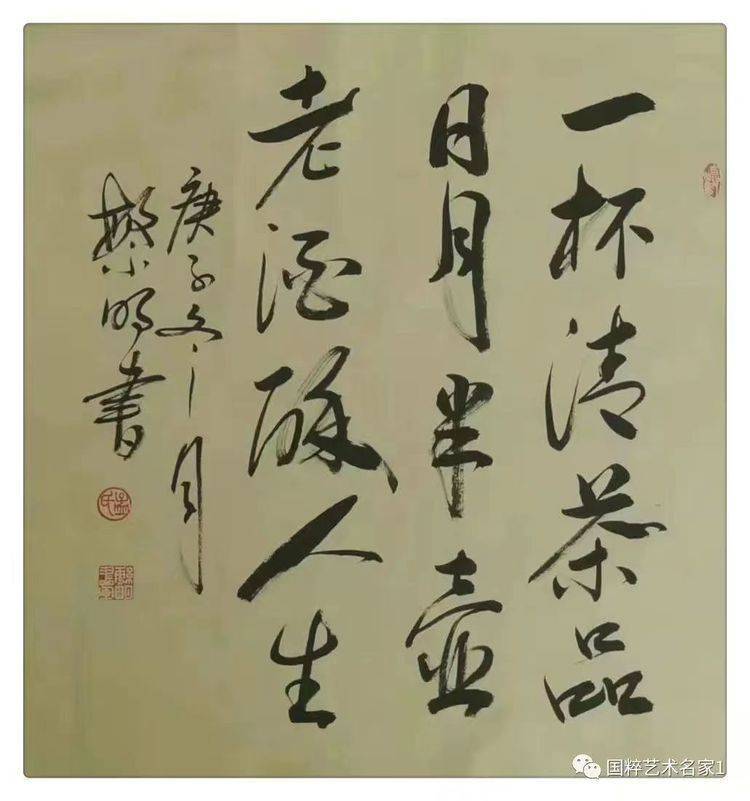 一杯清茶品
日月半壶
老酒酥人生
庚子冬月
繁明书
国粹艺术名家1